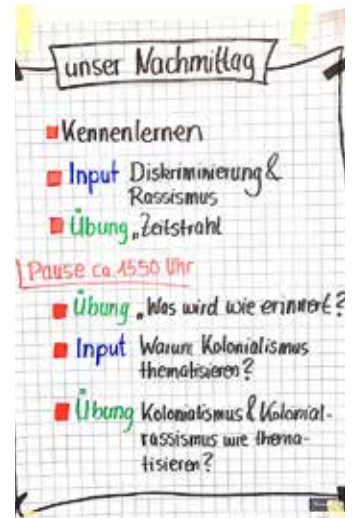 unser Nachmittag
Kennenlernen
Input Diskriminierung &
Rassismus
Übung „Zeitstrahl
Pause ca. 1550 Uhr
Übung „Was wird wie erinnert?
Input Warum Kolonialismus
thematisieren?
Übung Kolonialismus & Kolonial-
rassismus wie thema-
tisieren?